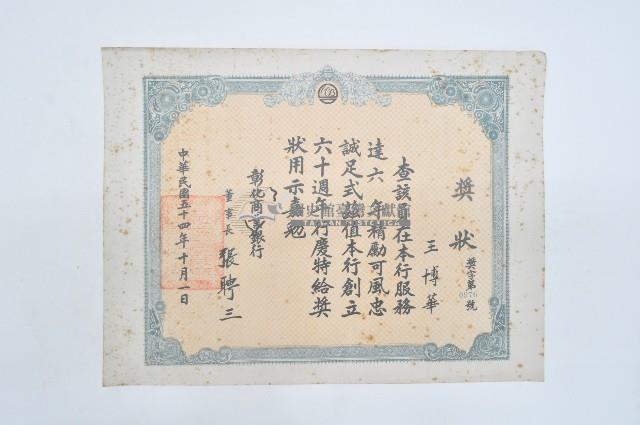 獎狀
獎字第0976號
王博華
查該員在本行服務
達六年精勵可風忠
誠足式茲值本行創立
六十週年行慶特給獎
狀用示嘉勉
彰化商業銀行
董事長 張聘三
中華民國五十四年十月一日